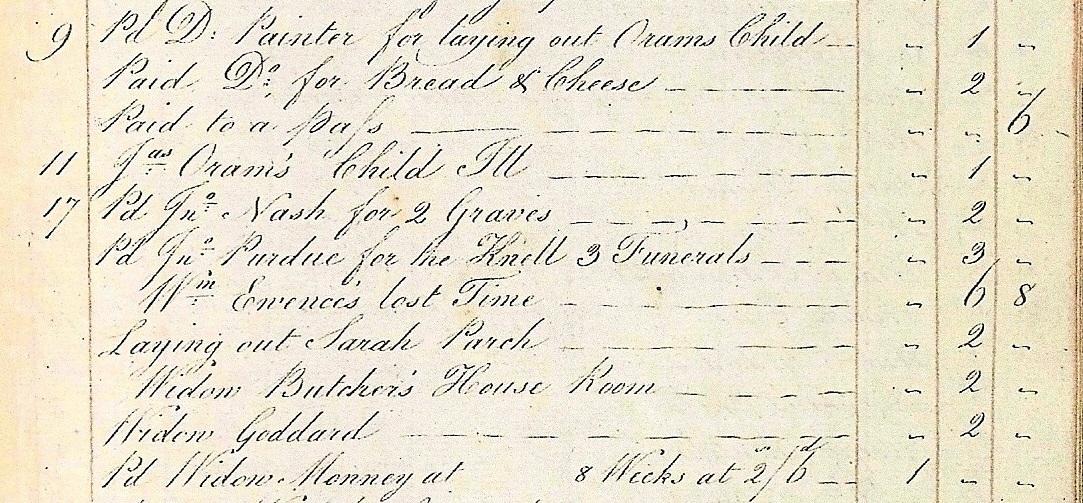 9 Pd D: Painter for laying out Orams Child — „ 1 „
Paid Do. for Bread & Cheese — „ 2 „
Paid to a Paſs — „ „ 6
11 Jas Oram's Child Ill — „ 1 „
17 Pd Jno. Nash for 2 Graves — „ 2 „
Pd Jno. Purdue for the Knell 3 Funerals — „ 3 „
Wm Ewence's lost Time — „ 6 8
Laying out Sarah Parch — „ 2 „
Widow Butcher's House Room — „ 2 „
Widow Goddard — „ 2 „
Pd Widow Monney at 8 Weeks at 2/6d — 1 „ „